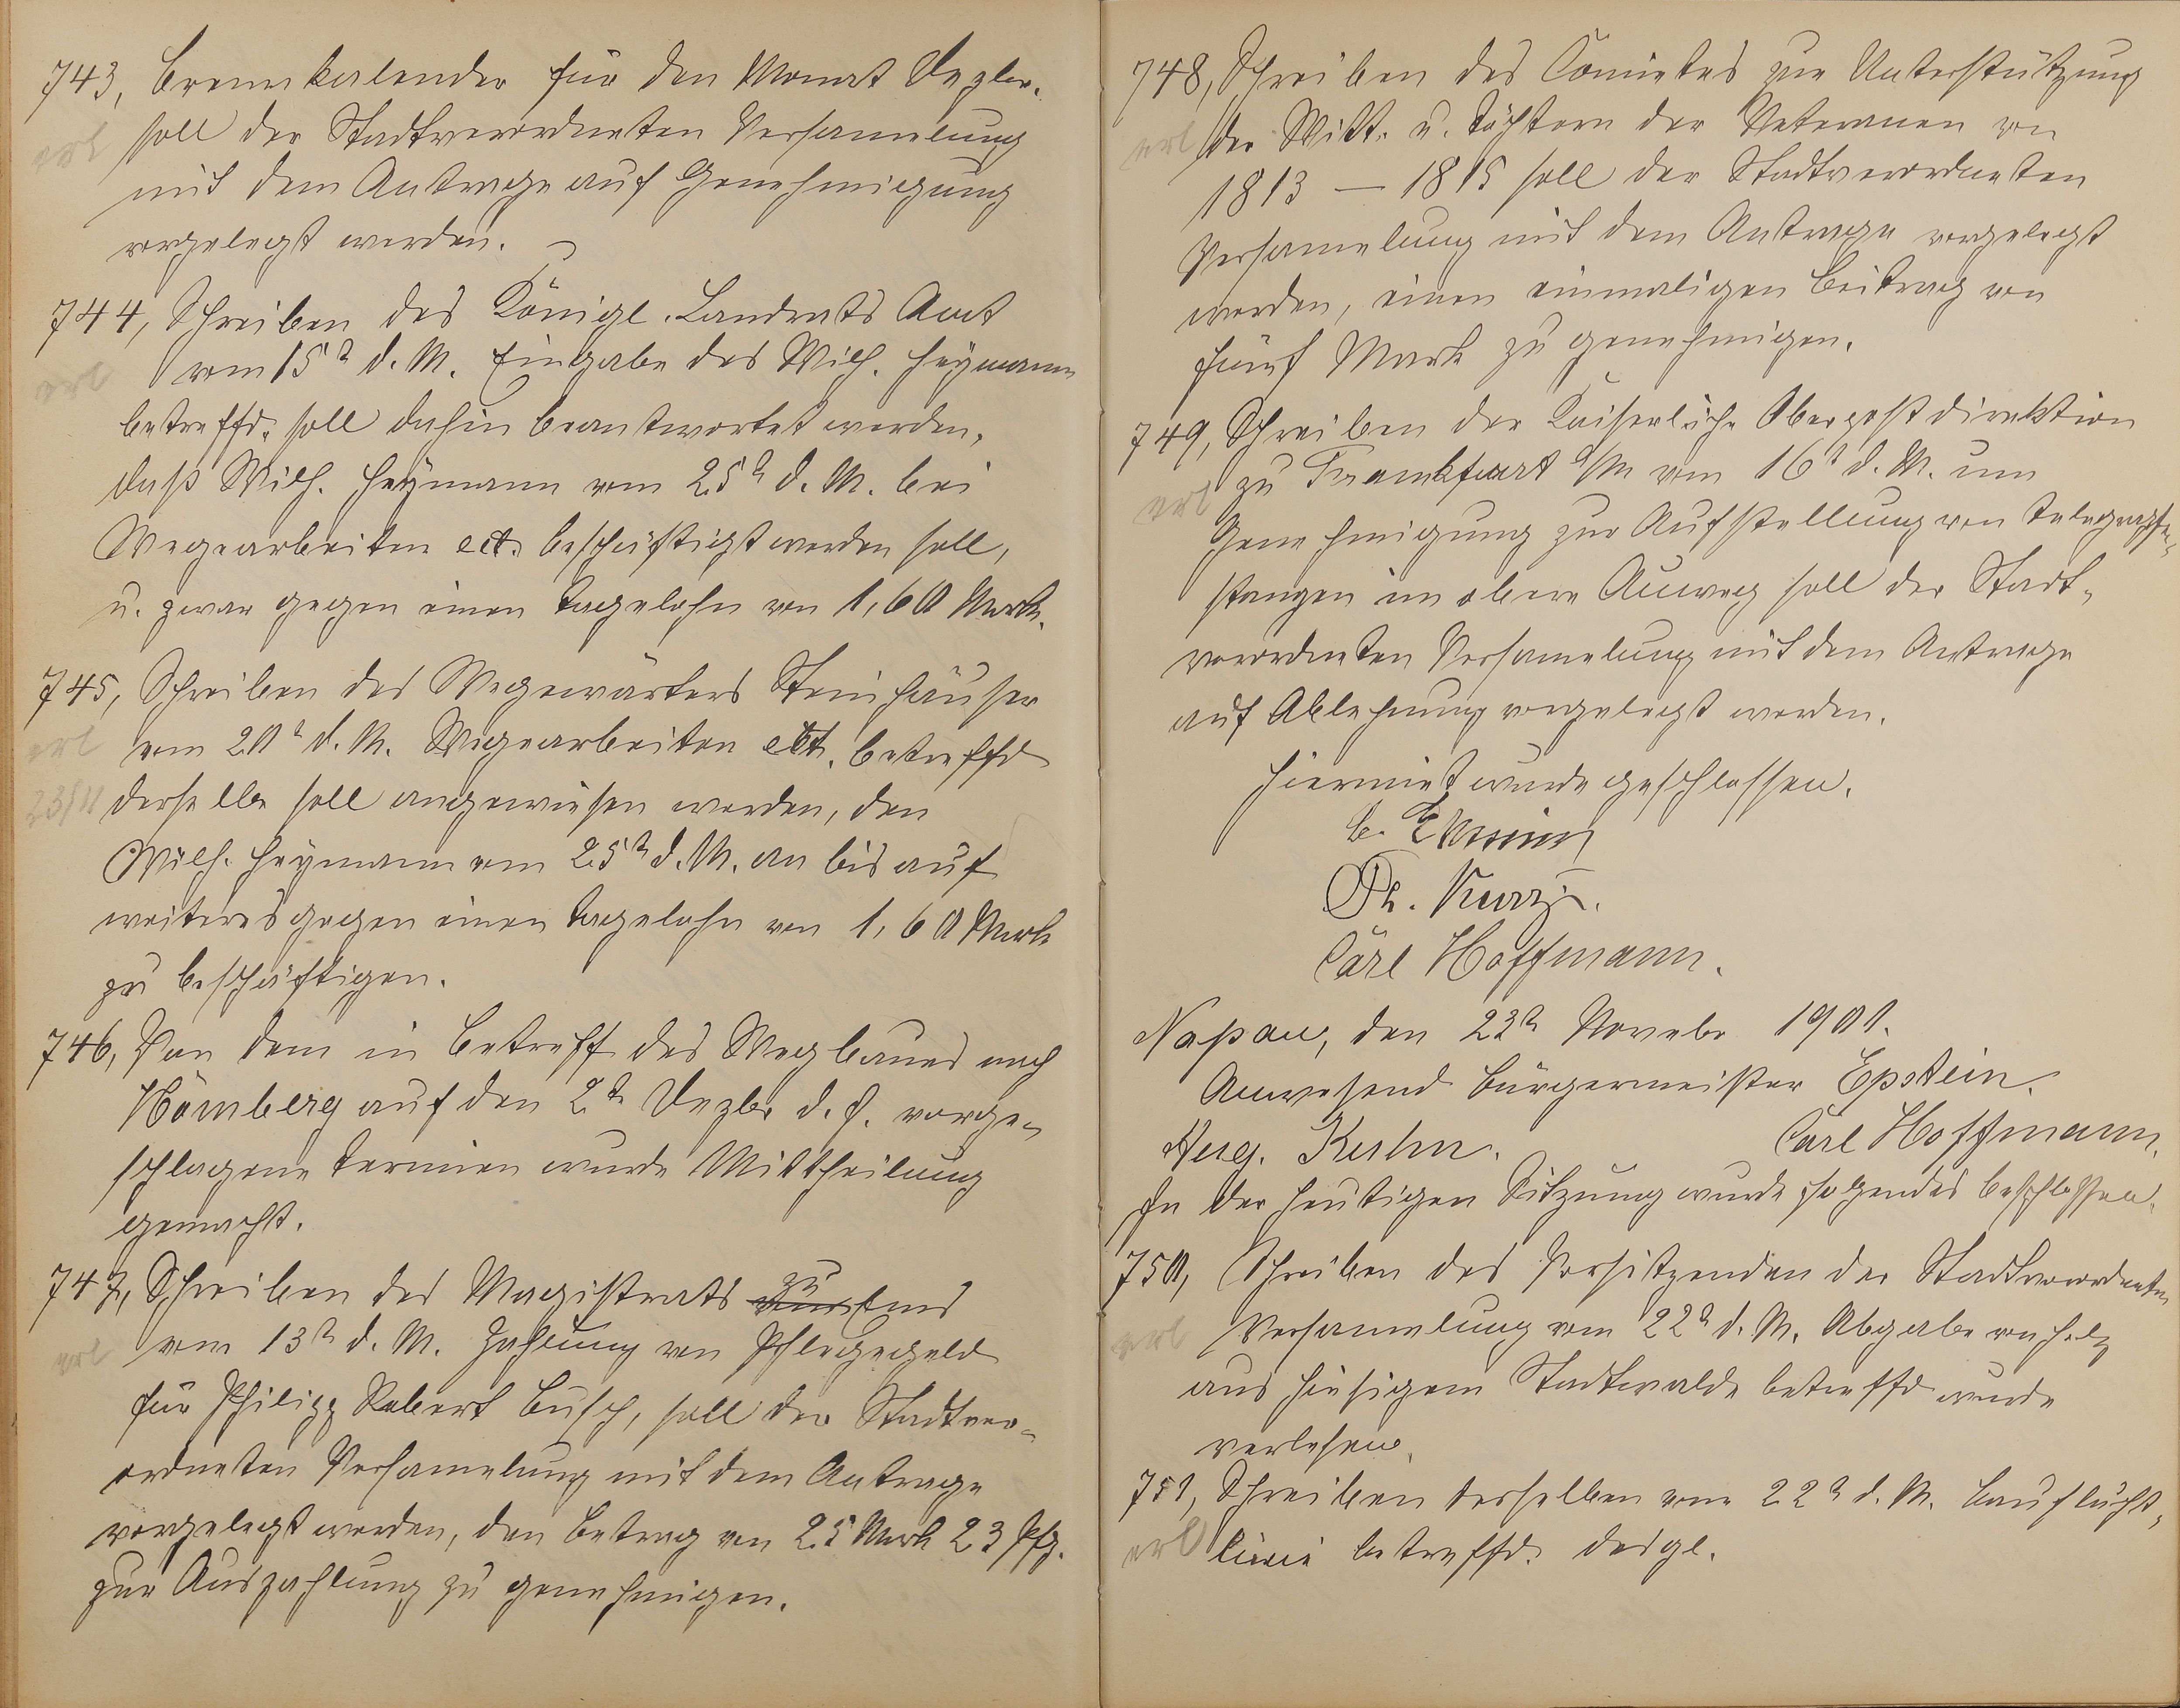 743, Brennkalender für den Monat Dezbr.
erl soll der Stadtverordneten Versamelung
mit dem Antrage auf Genehmigung
vorgelegt werden.
744, Schreiben des Königl. Landrats Amt
erl vom 15t d. M. Eingabe des Wilh. Heymann
betreffd. soll dahin beantwortet werden,
daß Wilh. Heymann vom 25t d. M. bei
Wegearbeiten ect. beschäftigt werden soll,
u. zwar gegen einen Tagelohn von 1,60 Mark.
745, Schreiben des Wegewärters Steinhäuser
erl vom 20t d. M. Wegearbeiten ect. betreffd
23/11 derselbe soll angewiesen werden, den
Wilh. Heymann vom 25t d. M. an bis auf
weiteres gegen einen Tagelohn von 1,60 Mark
zu beschäftigen.
746, Von dem in Betreff des Wegbaues nach
Hömberg auf den 2t Dezbr d. J. vorge-
schlagene Termien wurde Mittheilung
gemacht.
747, Schreiben des Magistrats zu Ems
erl vom 13t d. M. Zahlung von Pflegegeld
für Philipp Robert Busch, soll der Stadtver-
ordneten Versamelung mit dem Antrage
vorgelegt werden, den Betrag von 25 Mark 23 Pfg.
zur Auszahlung zu genehmigen.
748, Schreiben des Comietes zur Unterstützung
erl der Witt. u. Töchtern der Veteranen von
1813 — 1815 soll der Stadtverordneten
Versamelung mit dem Antrage vorgelegt
werden, einen einmaligen Beitrag von
fünf Mark zu genehmigen.
749, Schreiben der Kaiserliche Oberpostdirektion
erl zu Frankfurt a/M vom 16t d. M. um
Genehmigung zur Aufstellung von Telegraphen-
stangen im obere Auweg soll der Stadt-
verordneten Versamelung mit dem Antrage
auf Ablehnung vorgelegt werden.
Hiermiet wurde geschlossen.
Ph. Kurz.
Carl Hoffmann.
Naßau, den 23t Novebr 1901.
Anwesend Bürgermeister Epstein.
Aug. Kuhn. Carl Hoffmann.
In der heutigen Sitzung wurde folgendes beschlossen.
750, Schreiben des Vorsitzenden der Stadtverordneten
erl Versammlung vom 22t d. M. Abgabe von Holz
aus hiesigem Stadtwalde betreffd wurde
verlesen.
751, Schreiben desselben vom 22t d. M. Bauflucht-
erl linie betreffd. desgl.